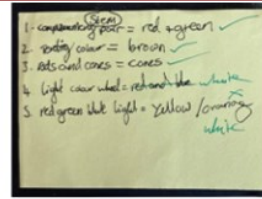 (Stem)
1- complementary pair = red + green ✓
2. colour = brown ✓
3. rods and cones = cones ✓
4 light colour wheel = red and blue white ×
5 red green blue light = yellow / orange
white